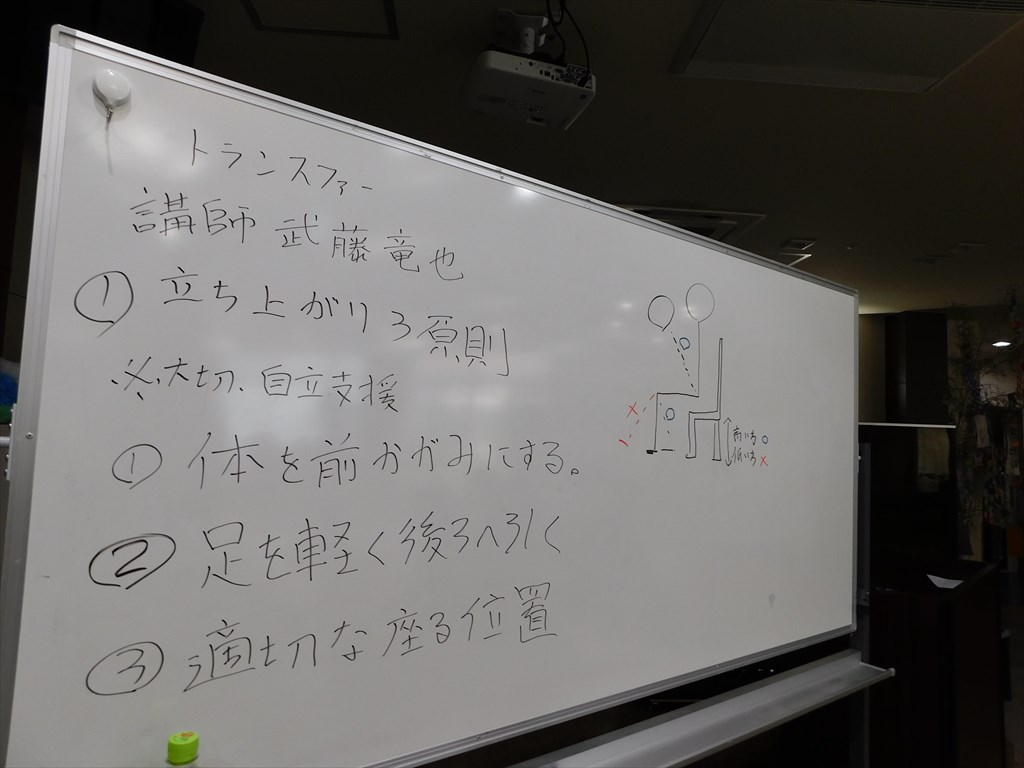 トランスファー
講師 武藤竜也
① 立ち上がり3原則
※大切、自立支援
① 体を前かがみにする。
② 足を軽く後ろへ引く
③ 適切な座る位置
○
× ○
高いち ○
低いち ×